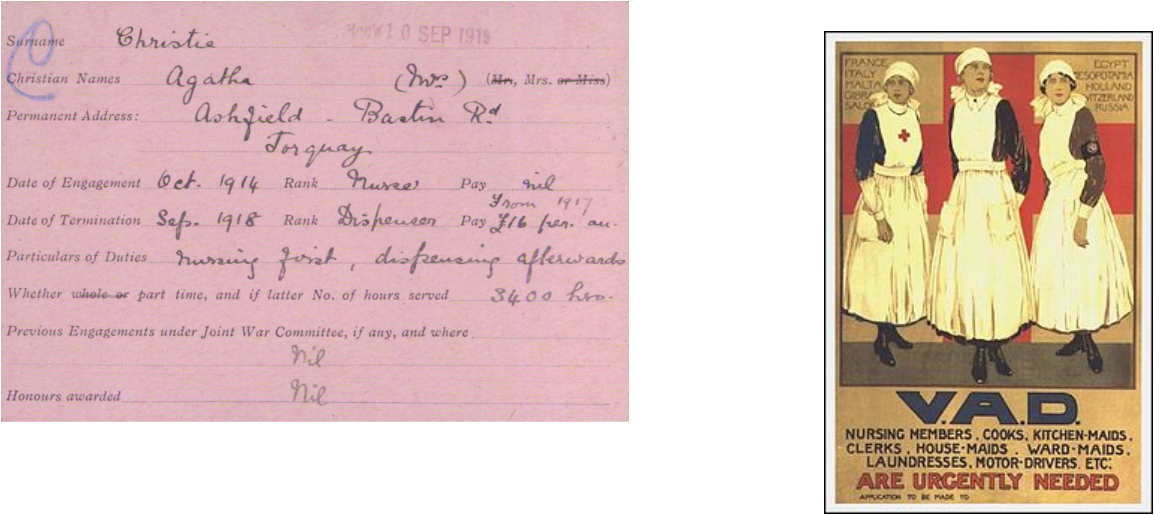 Rec'd 10 SEP 1919
Surname Christie
Christian Names Agatha (Mrs) (Mr, Mrs. or Miss)
Permanent Address: Ashfield - Barton Rd
Torquay
Date of Engagement Oct. 1914 Rank Nurse Pay nil
From 1917
Date of Termination Sep. 1918 Rank Dispenser Pay £16 per. an.
Particulars of Duties Nursing first, dispensing afterwards
Whether whole or part time, and if latter No. of hours served 3400 hrs.
Previous Engagements under Joint War Committee, if any, and where
Nil
Honours awarded Nil
FRANCE
ITALY
MALTA
GIBRA
SALON
EGYPT
ESOPOTAMIA
HOLLAND
ITZERLAND
RUSSIA
V.A.D.
NURSING MEMBERS, COOKS, KITCHEN-MAIDS,
CLERKS, HOUSE-MAIDS, WARD-MAIDS,
LAUNDRESSES, MOTOR-DRIVERS, ETC.
ARE URGENTLY NEEDED
APPLICATION TO BE MADE TO